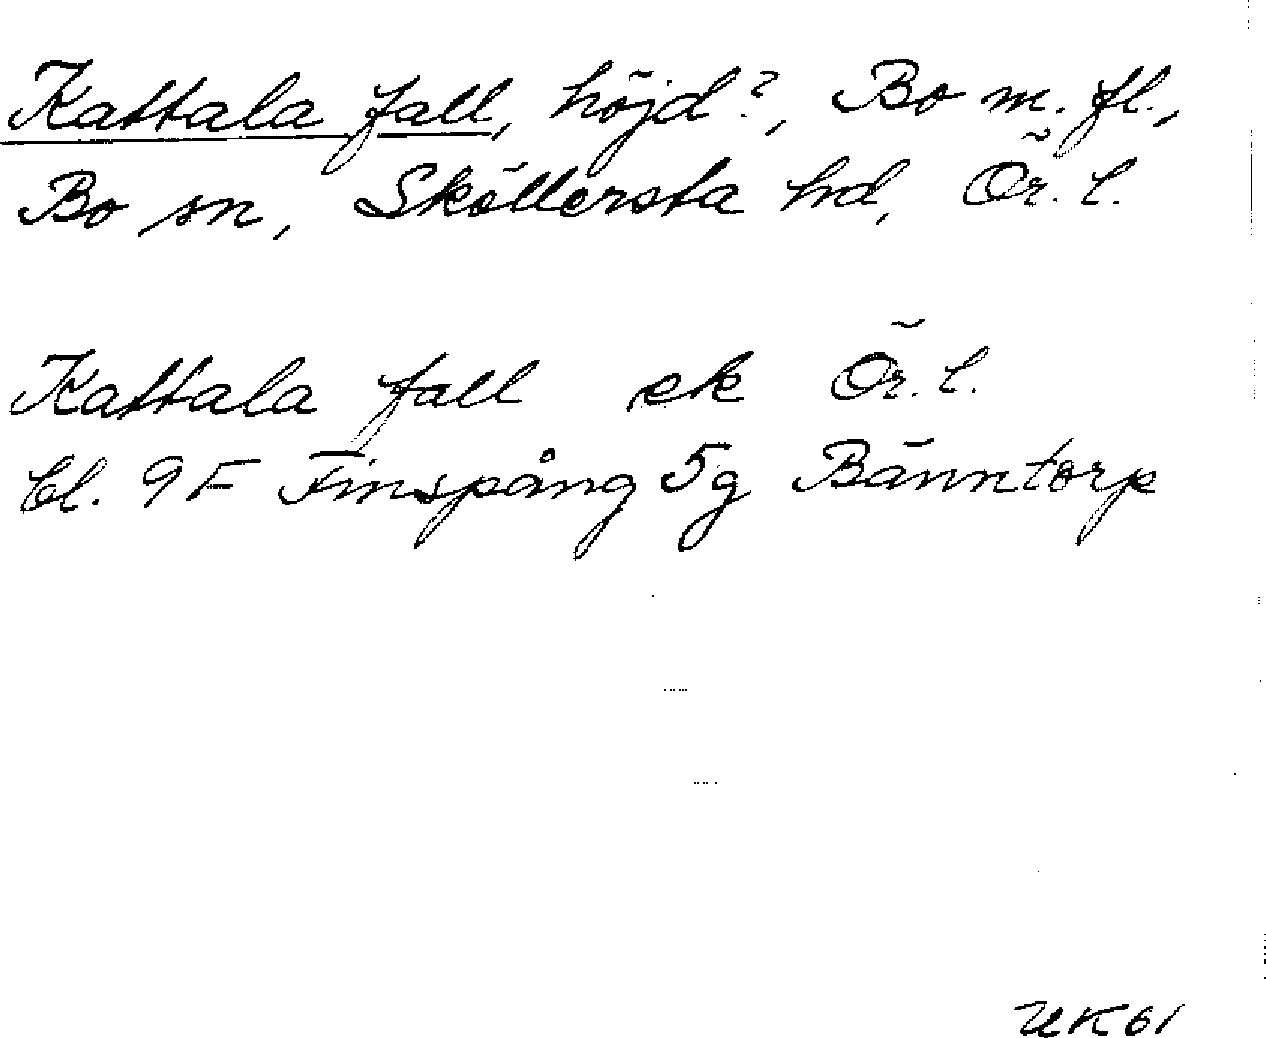 Kattala fall, höjd?, Bo m. fl.,
Bo sn, Sköllersta hd, Ör. l.
Kattala fall ek Ör. l.
bl. 9F Finspång 5g Bänntorp
UK61